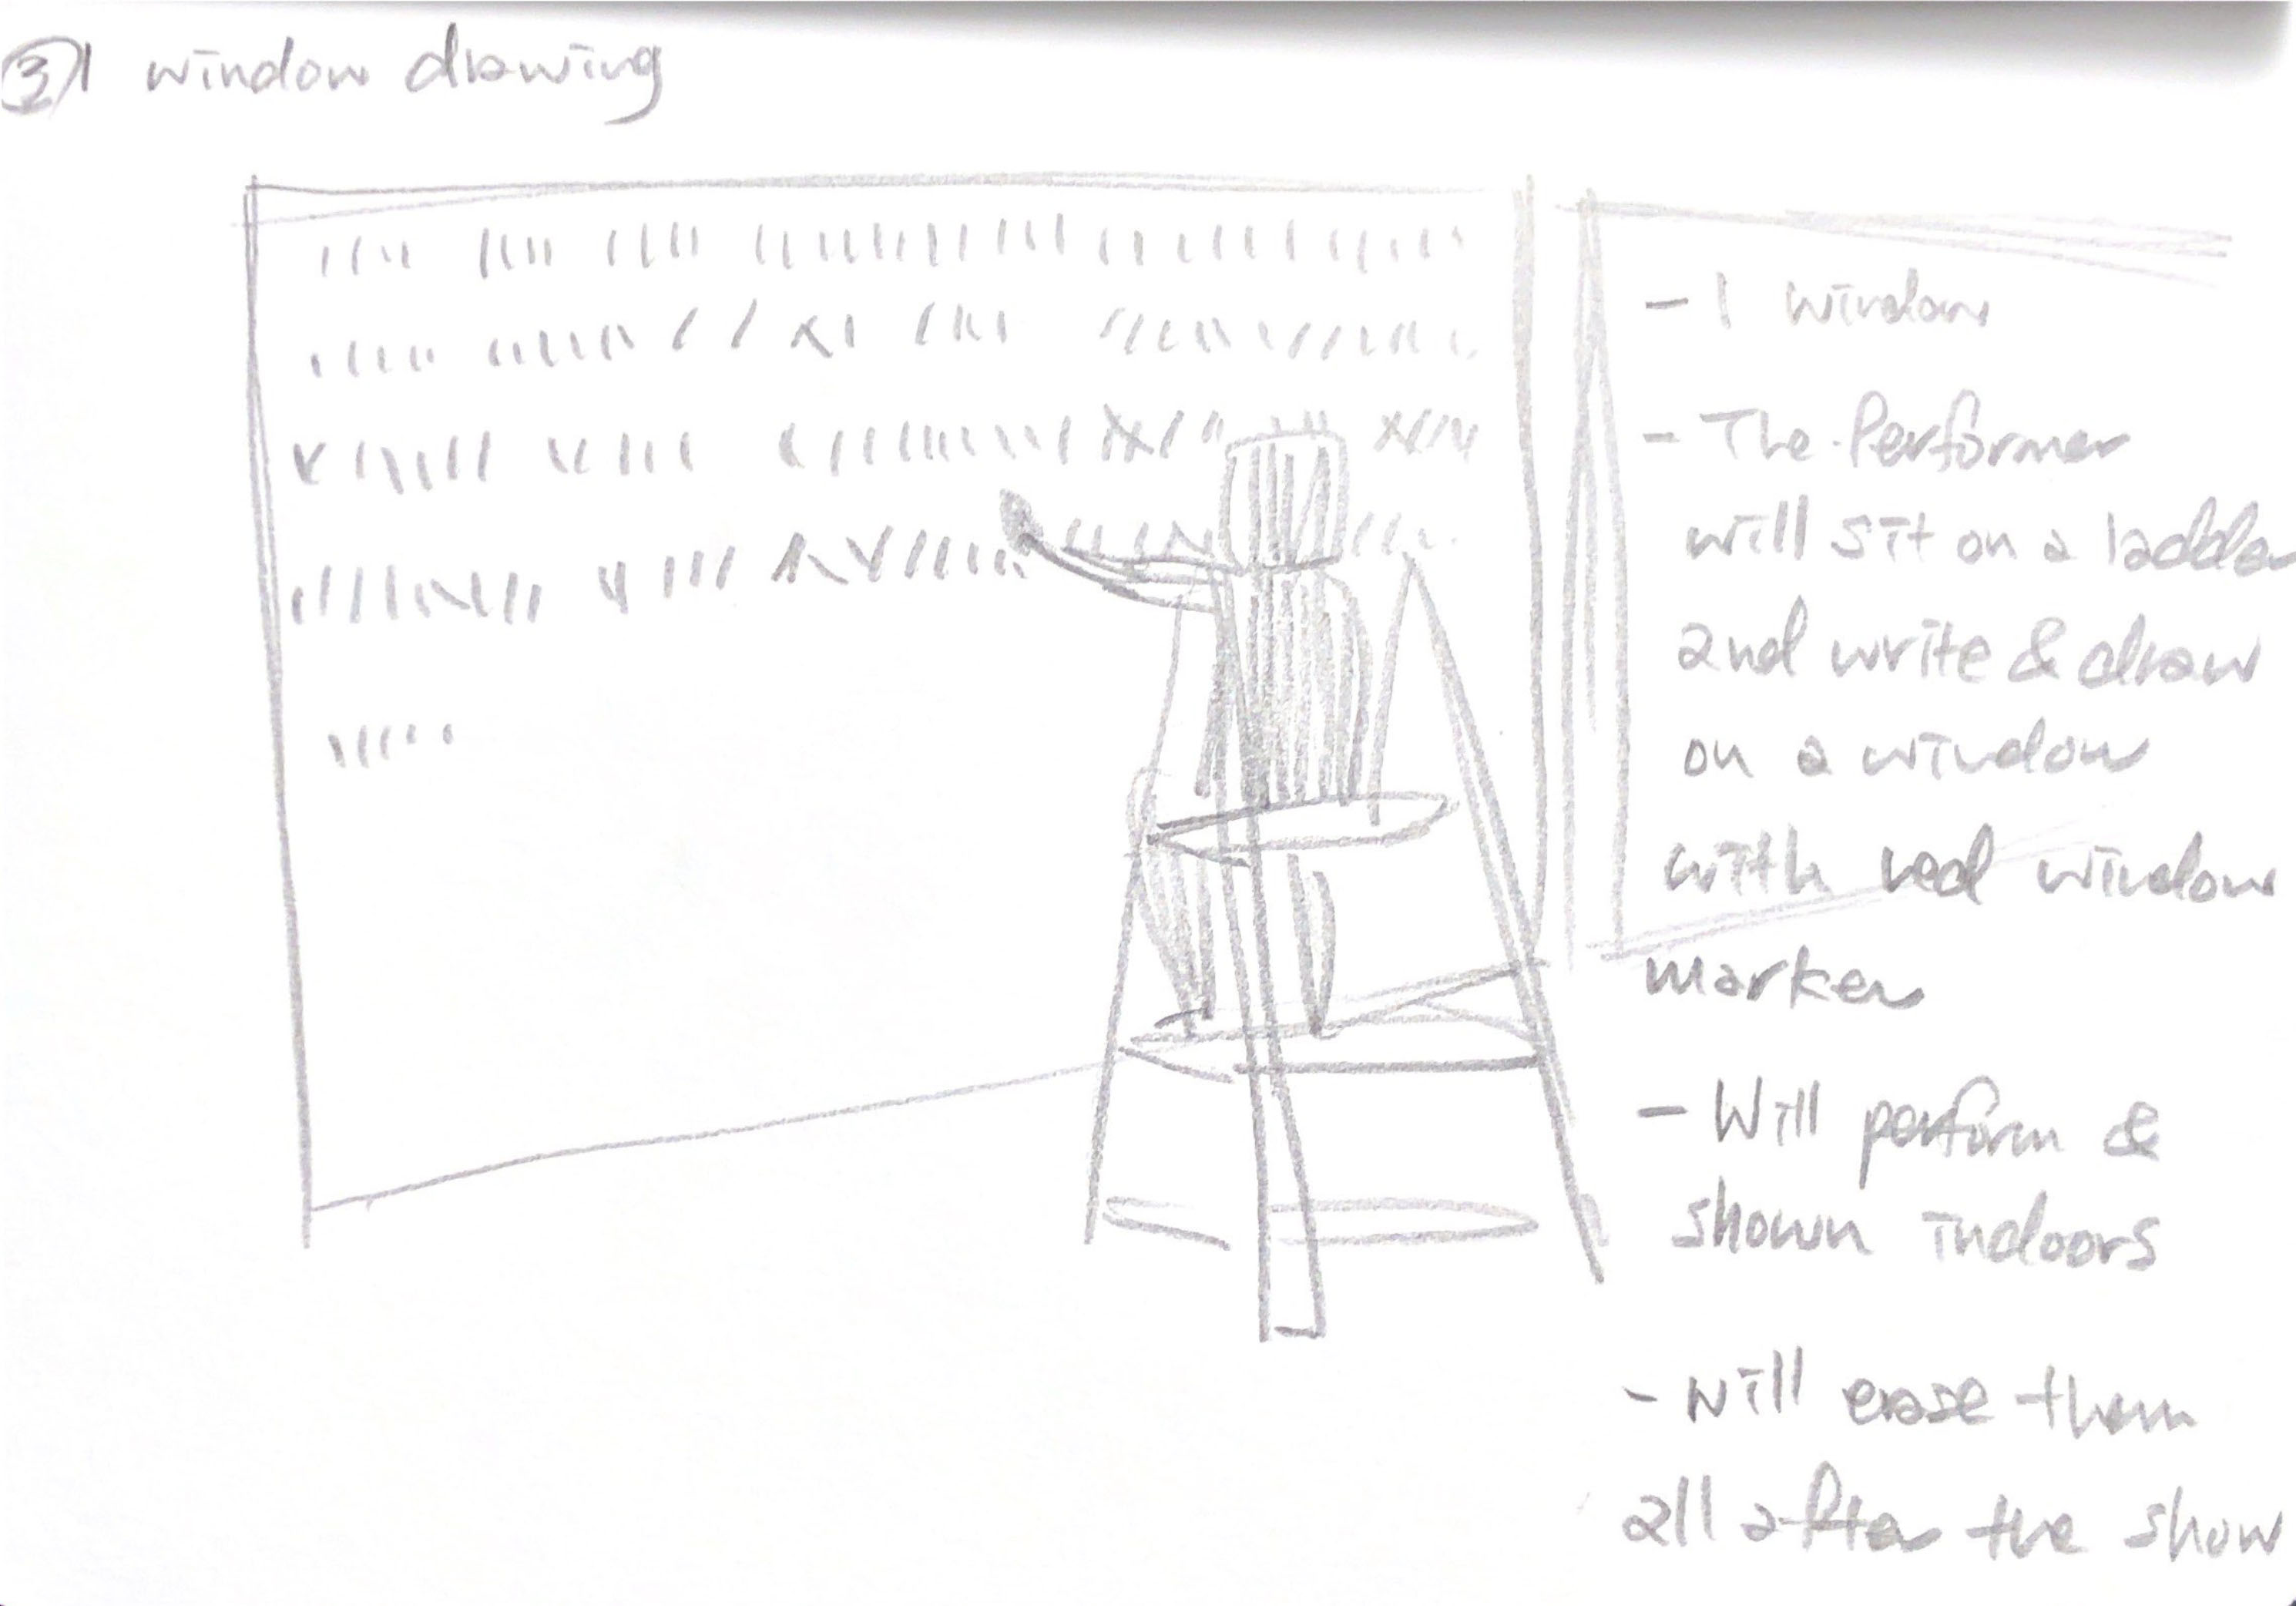 ③1 window drawing
- 1 window
- The Performer
will sit on a ladder
and write & draw
on a window
with red window
marker
- Will perform &
shown indoors
- will erase them
all after the show